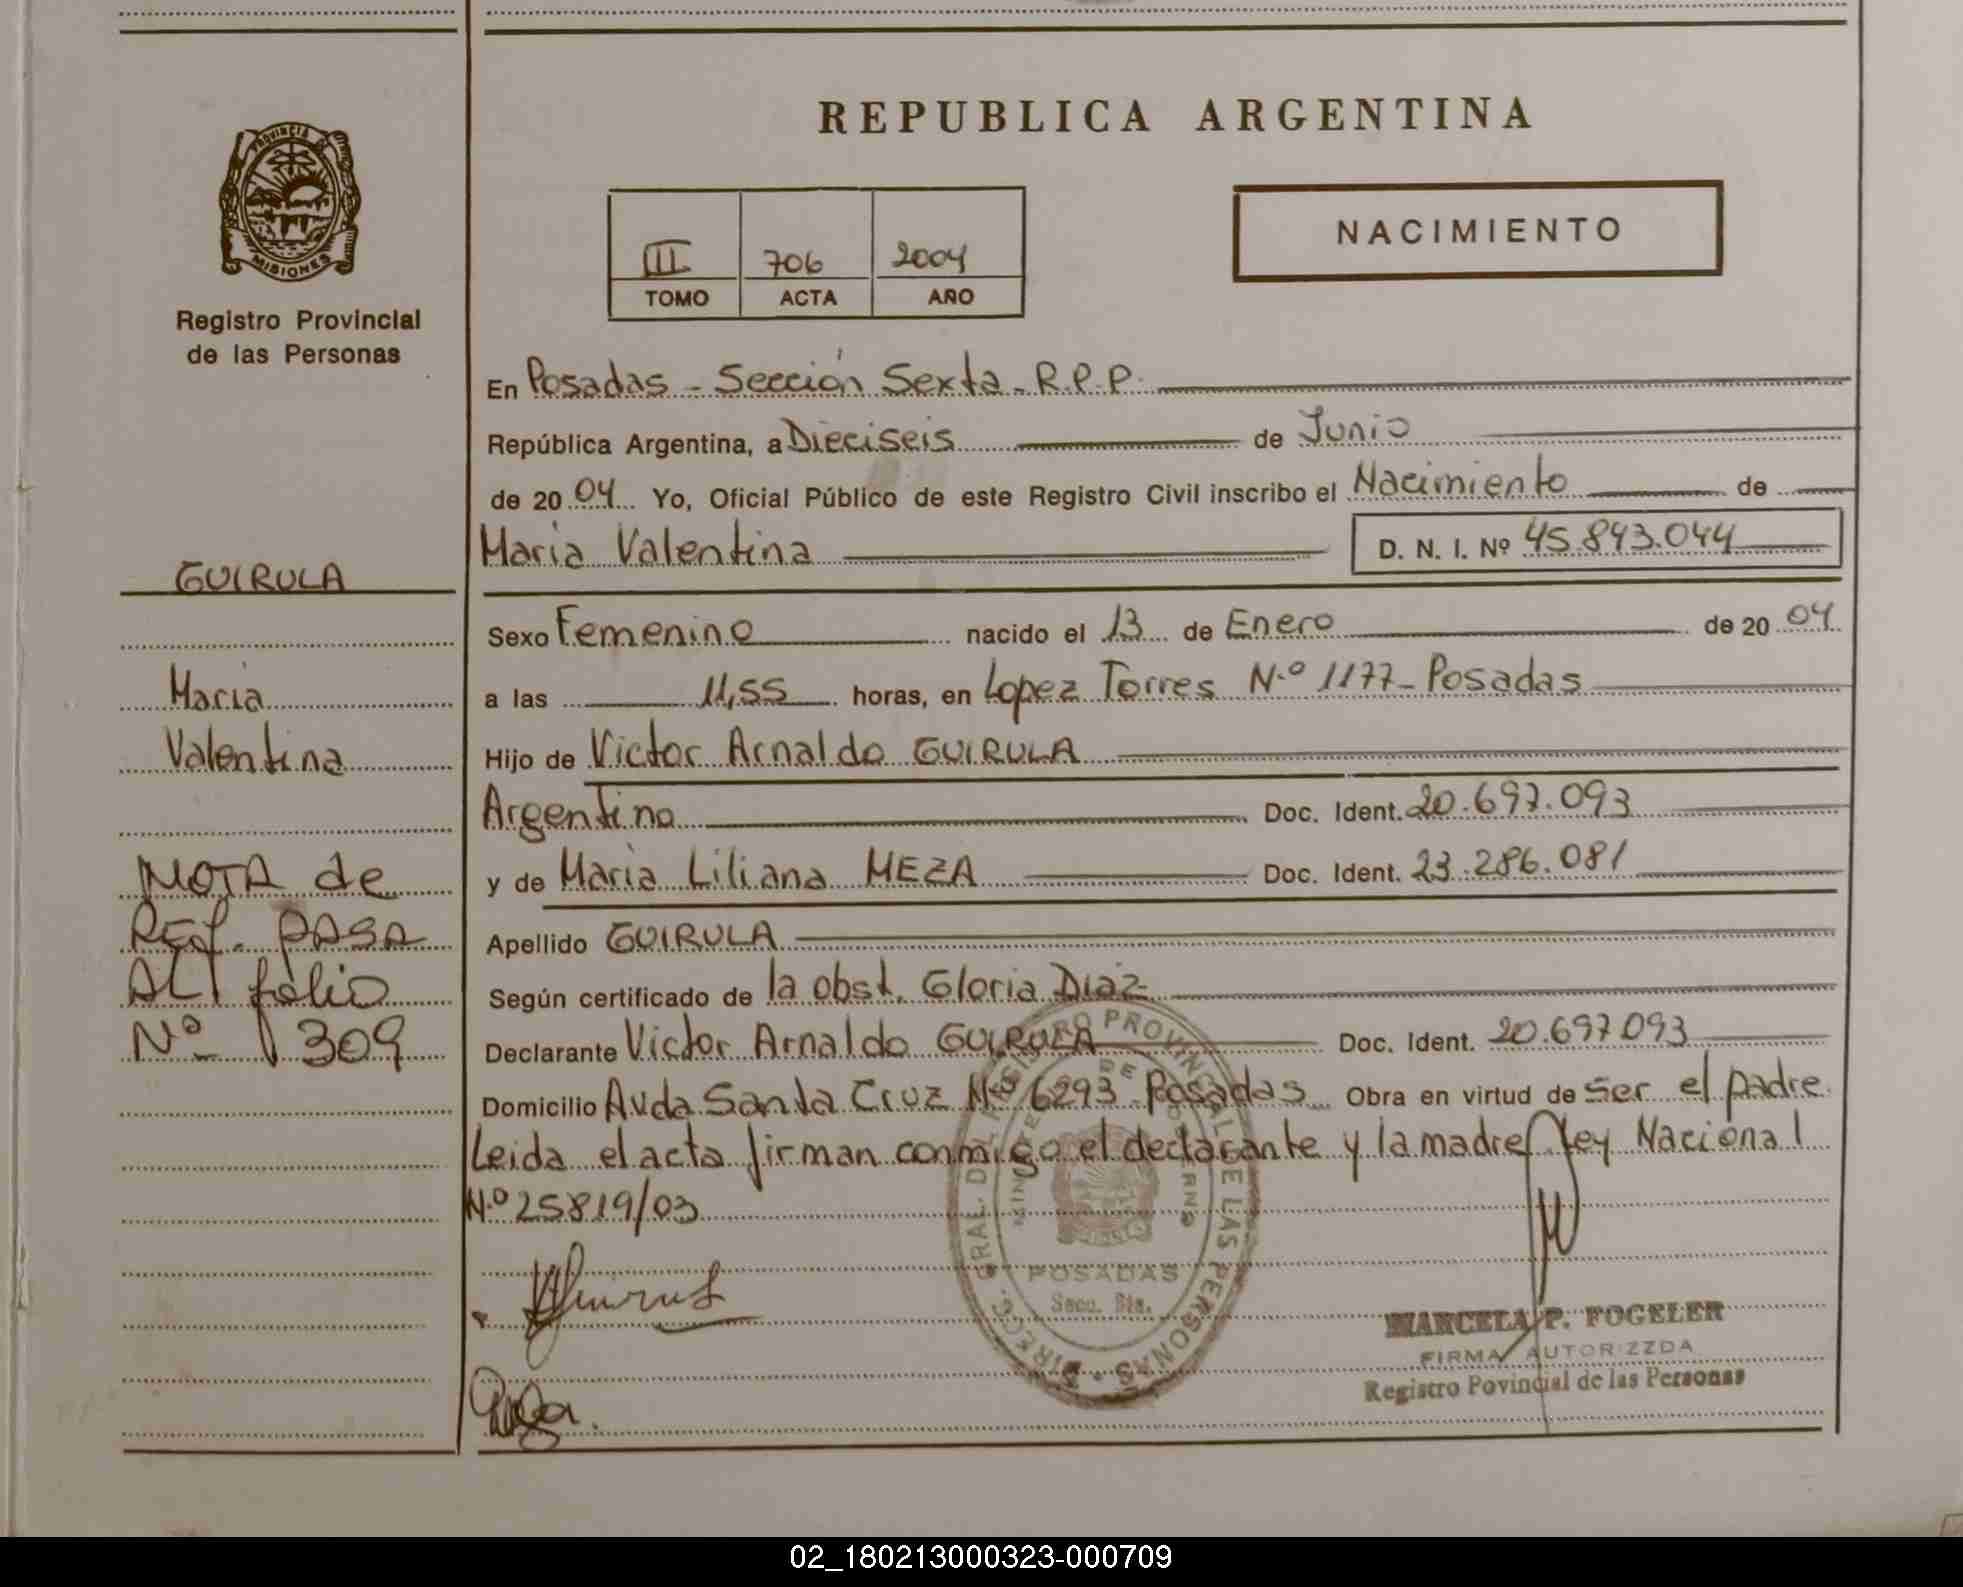 REPUBLICA ARGENTINA
PROVINCIA DE
MISIONES
Registro Provincial
de las Personas
III 706 2004
TOMO ACTA AÑO
NACIMIENTO
En Posadas - Sección Sexta - R.P.P.
República Argentina, a Dieciseis de Junio
de 2004 Yo, Oficial Público de este Registro Civil inscribo el Nacimiento de
Maria Valentina D. N. I. Nº 45.843.044
Sexo Femenino nacido el 13 de Enero de 2004
a las 11,55 horas, en Lopez Torres N.º 1177 - Posadas
Hijo de Victor Arnaldo GUIRULA
Argentino Doc. Ident. 20.697.093
y de Maria Liliana MEZA Doc. Ident. 23.286.081
Apellido GUIRULA
Según certificado de la obst. Gloria Diaz
Declarante Victor Arnaldo GUIRULA Doc. Ident. 20.697093
Domicilio Avda Santa Cruz Nº 6293 Posadas Obra en virtud de ser el padre
Leida el acta firman conmigo el declarante y la madre Ley Nacional
N.º 25819/03
GUIRULA
Maria
Valentina
NOTA de
REF. PASA
AL folio
Nº 309
DIREC. GRAL. DEL REGISTRO PROVINCIAL DE LAS PERSONAS
POSADAS
Secc. 6ta.
MARCELA P. FOGELER
FIRMA AUTORIZZDA
Registro Povincial de las Personas
02_180213000323-000709